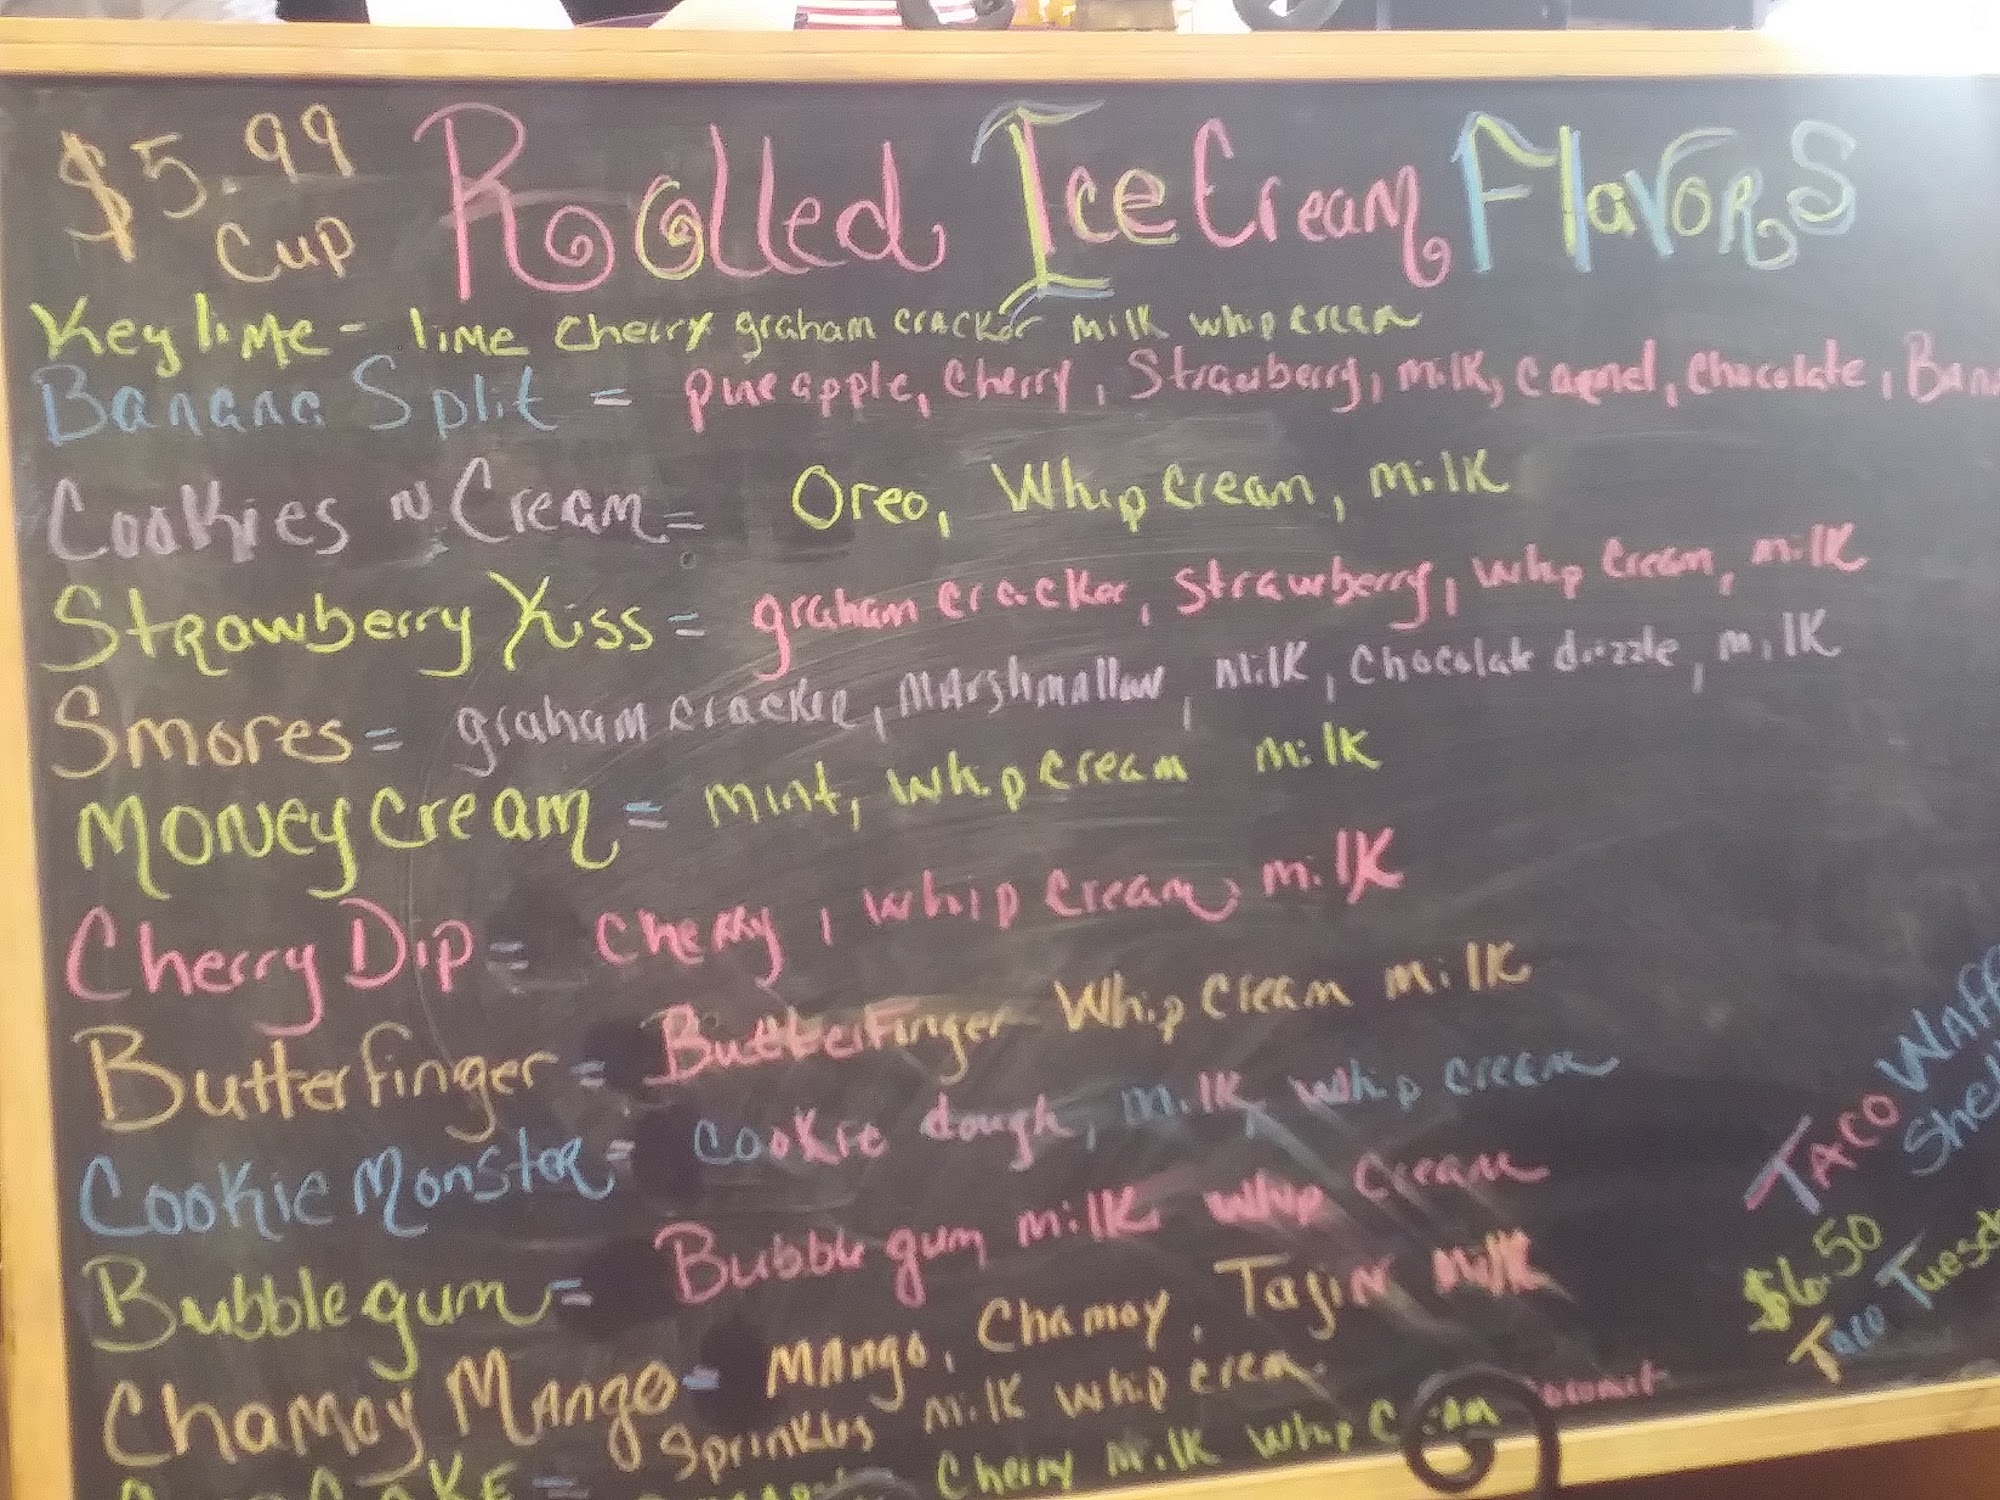 $5.99 Rolled Ice Cream Flavors
Cup
Key lime - lime cherry graham cracker milk whip cream
Banana Split = pineapple, cherry, Strawberry, milk, Chocolate,
Cookies N Cream = Oreo, Whip cream, milk
Strawberry Kiss = graham cracker, strawberry, whip cream, milk
Smores = graham cracker, Marshmallow, milk, Chocolate drizzle, milk
Money cream = mint, whip cream milk
Cherry Dip = Cherry, whip cream, milk
Butterfinger = Butterfinger Whip cream milk
Cookie Monster = cookie dough, milk, whip cream
Bubble gum = Bubble gum milk whip cream
Chamoy Mango = Mango, Chamoy, Tajin milk
Sprinkles milk whip cream
Cherry milk whip cream
Taco
$6.50
Taco